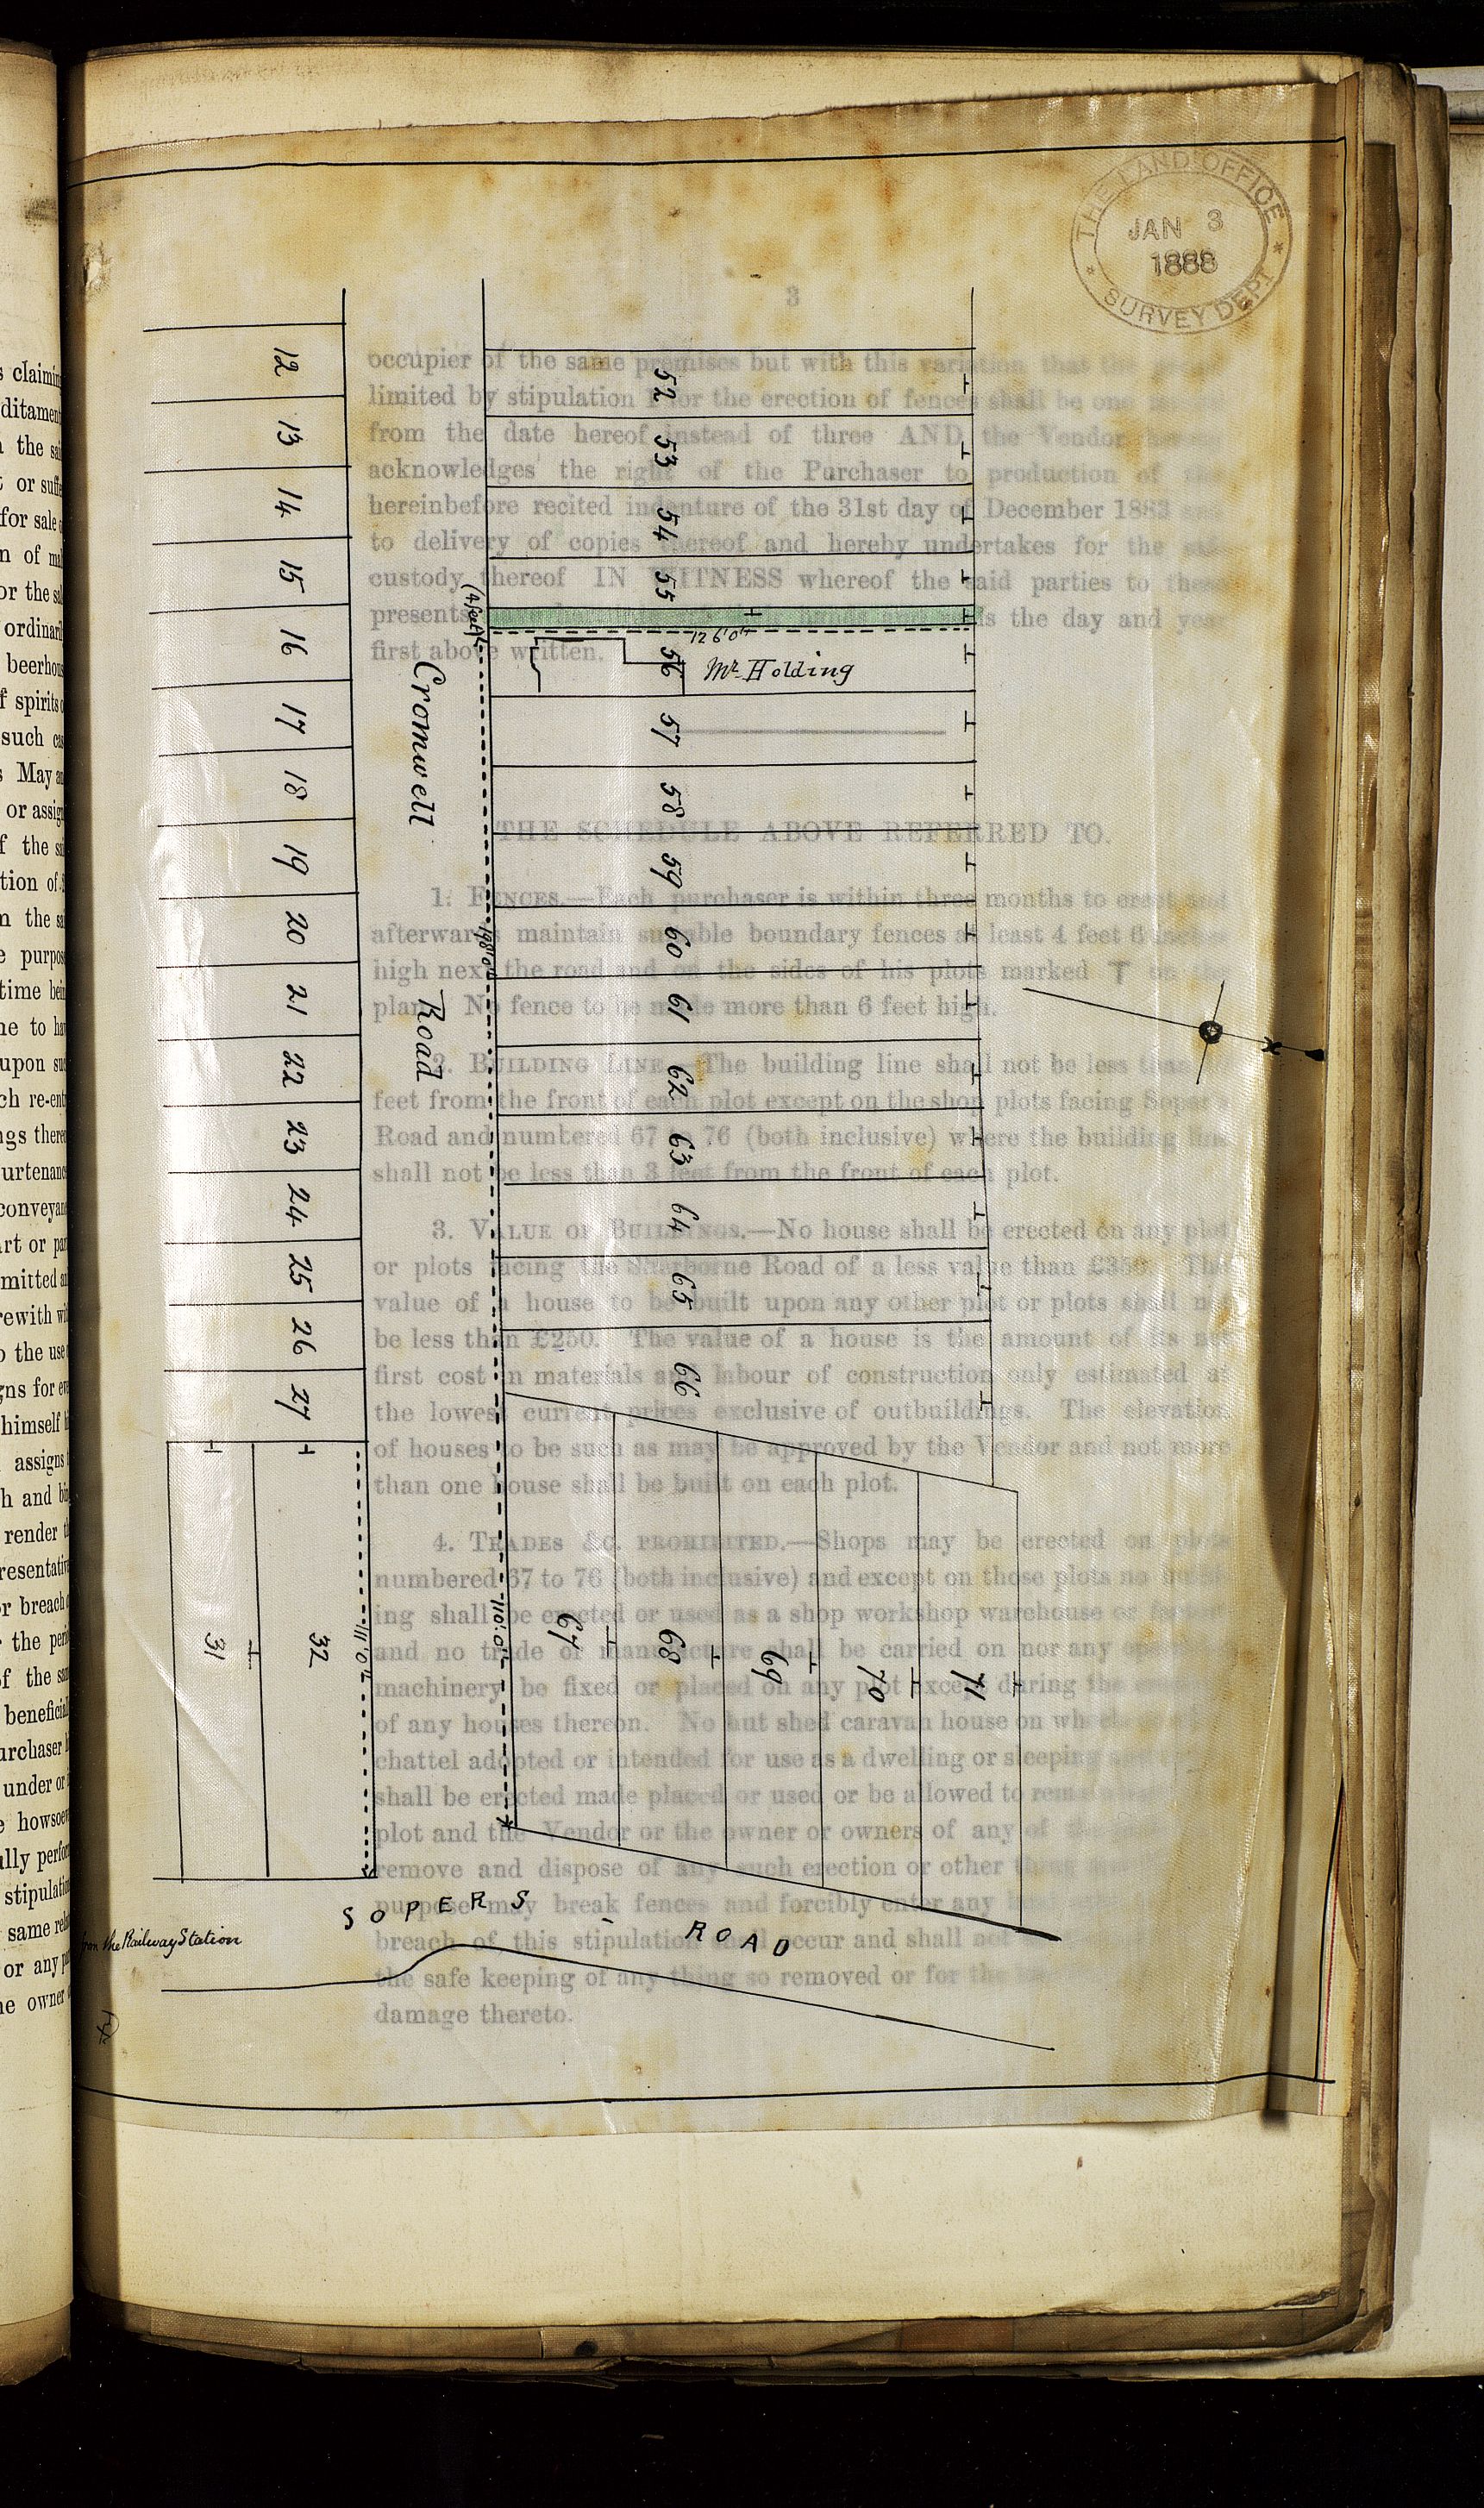 THE LAND OFFICE
JAN 3
1888
SURVEY DEPT
3
occupier of the same premises but with this variation that the
limited by stipulation for the erection of fences shall be one
from the date hereof instead of three AND the Vendor
acknowledges the right of the Purchaser to production of the
hereinbefore recited indenture of the 31st day of December 1883 and
to delivery of copies thereof and hereby undertakes for the safe
custody thereof IN WITNESS whereof the said parties to these
presents have hereunto set their hands and seals the day and year
first above written.
THE SCHEDULE ABOVE REFERRED TO.
1. FENCES.—Each purchaser is within three months to erect and
afterwards maintain suitable boundary fences at least 4 feet 6 inches
high next the road and on the sides of his plots marked T on
plan. No fence to be made more than 6 feet high.
2. BUILDING LINE.—The building line shall not be less than
feet from the front of each plot except on the shop plots facing Soper's
Road and numbered 67 to 76 (both inclusive) where the building line
shall not be less than 3 feet from the front of each plot.
3. VALUE OF BUILDINGS.—No house shall be erected on any plot
or plots facing the Road of a less value than £350. The
value of a house to be built upon any other plot or plots shall not
be less than £250. The value of a house is the amount of its net
first cost in materials and labour of construction only estimated at
the lowest current prices exclusive of outbuildings. The elevation
of houses to be such as may be approved by the Vendor and not more
than one house shall be built on each plot.
4. TRADES &c. PROHIBITED.—Shops may be erected on plots
numbered 67 to 76 (both inclusive) and except on those plots no build-
ing shall be erected or used as a shop workshop warehouse or factory
and no trade or manufacture shall be carried on nor any
machinery be fixed or placed on any plot except during the
of any houses thereon. No hut shed caravan house on wheels
chattel adopted or intended for use as a dwelling or sleeping
shall be erected made placed or used or be allowed to remain
plot and the Vendor or the owner or owners of any of
remove and dispose of any such erection or other thing
purpose may break fences and forcibly enter any
breach of this stipulation shall occur and shall not
the safe keeping of any thing so removed or for the
damage thereto.
12
13
14
15
16
17
18
19
20
21
22
23
24
25
26
27
31
32
52
53
54
55
56
57
58
59
60
61
62
63
64
65
66
67
68
69
70
71
(4 feet)
126'0"
Mr. Holding
Cromwell Road
198'0"
110'.0"
111'0"
SOPERS - ROAD
the Railway Station
claiming
the
or
for sale
of
or the
beerhouse
spirits
such
May
or
of the
the
purpose
to
upon
re-
conveyance
or
the use
for
himself
assigns
and
render
or breach
the
of the
beneficial
under or
stipulation
same
or any
owner